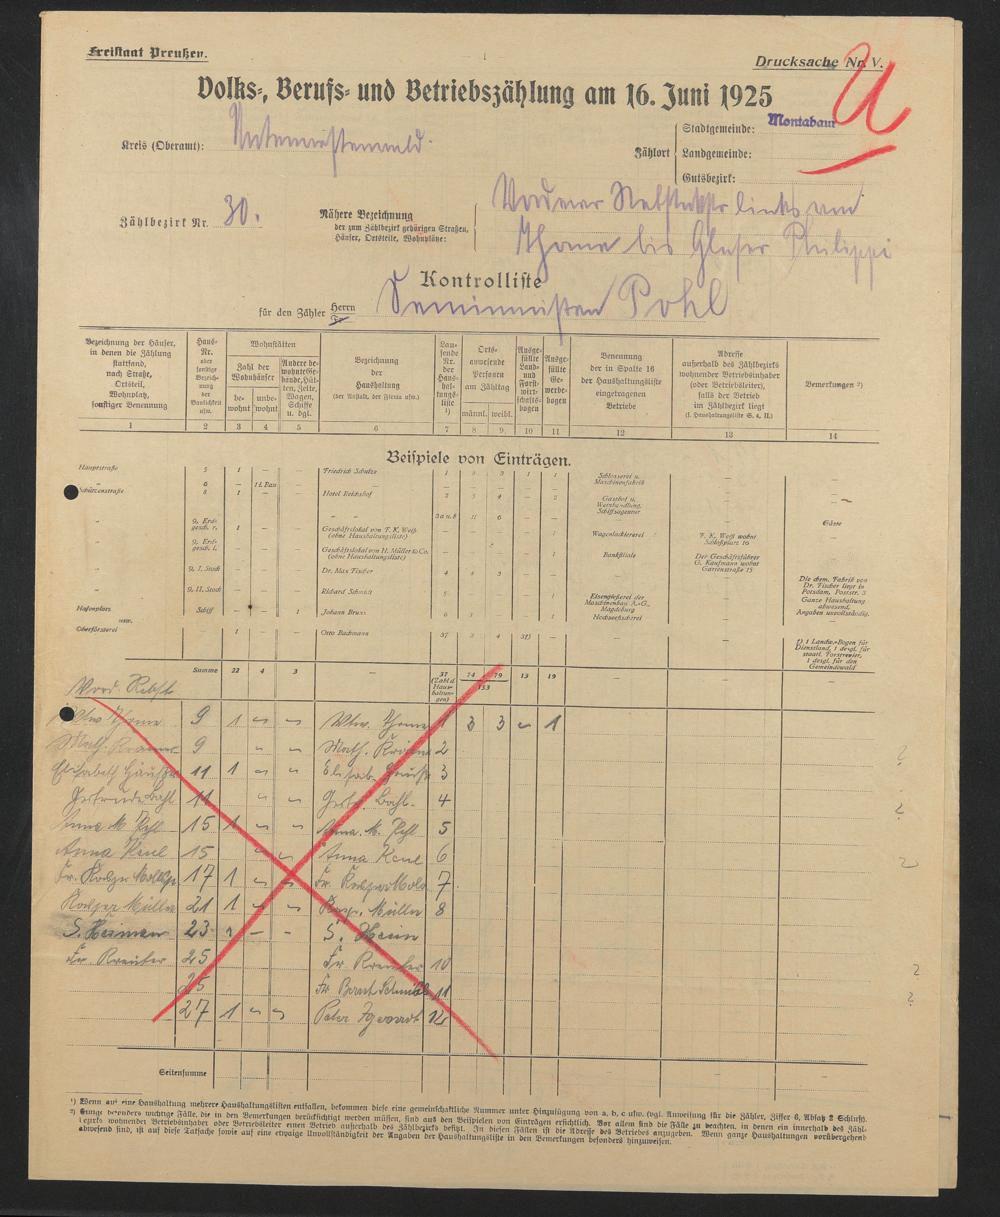 Freistaat Preußen.
Drucksache Nr. V.
U
Volks-, Berufs- und Betriebszählung am 16. Juni 1925
Kreis (Oberamt): Unterwesterwald.
Zählort
Stadtgemeinde: Montabaur
Landgemeinde:
Gutsbezirk:
Zählbezirk Nr. 30.
Nähere Bezeichnung
der zum Zählbezirk gehörigen Straßen,
Häuser, Ortsteile, Wohnplätze:
Vorderer Rebstock links von
Thome bis Glaser Philippi
Kontrolliste
für den Zähler Herrn Seminaristen Pohl
Bezeichnung der Häuser, in denen die Zählung stattfand, nach Straße, Ortsteil, Wohnplatz, sonstiger Benennung
Haus-Nr. oder sonstige Bezeichnung der Baulichkeit usw.
Wohnstätten
Zahl der Wohnhäuser
bewohnt
unbewohnt
Andere bewohnte Gebäude, Hütten, Zelte, Wagen, Schiffe u. dgl.
Bezeichnung der Haushaltung (der Anstalt, der Firma usw.)
Laufende Nr. der Haushaltungsliste ¹)
Ortsanwesende Personen am Zähltag
männl. weibl.
Ausgefüllte Land- und Forstwirtschaftsbogen
Ausgefüllte Gewerbebogen
Benennung der in Spalte 16 der Haushaltungsliste eingetragenen Betriebe
Adresse außerhalb des Zählbezirks wohnender Betriebsinhaber (oder Betriebsleiter), falls der Betrieb im Zählbezirk liegt (s. Haushaltungsliste S. 4, II.)
Bemerkungen ²)
1 2 3 4 5 6 7 8 9 10 11 12 13 14
Beispiele von Einträgen.
Hauptstraße 5 1 — — Friedrich Schulze 1 1 1 Schlosserei u. Maschinenfabrik — —
„ 6 — 1 i. Bau — — — — — — — — —
Schützenstraße 8 1 — — Hotel Reichshof 2 3 4 — 2 Gasthof u. Weinhandlung, Schiffsagentur — —
„ „ — — — „ „ 3 a u. b 11 6 — — — — Gäste
„ 9, Erdgesch. r. 1 — — Geschäftslokal von F. K. Weiß (ohne Haushaltungsliste) — — — — 1 Wagenlackiererei F. K. Weiß wohnt Schloßplatz 16 —
„ 9, Erdgesch. l. — — — Geschäftslokal von H. Müller & Co. (ohne Haushaltungsliste) — — — — 1 Bankfiliale Der Geschäftsführer G. Kaufmann wohnt Gartenstraße 15 —
„ 9, I. Stock — — — Dr. Max Fischer 4 — — — — Die chem. Fabrik von Dr. Fischer liegt in Potsdam, Poststr. 3
„ 9, II. Stock — — — Richard Schmidt 5 — — — 1 Eisengießerei der Maschinenbau A.-G., Magdeburg — Ganze Haushaltung abwesend. Angaben unvollständig.
Hafenplatz Schiff — — 1 Johann Bruns 6 — 1 Hochseefischerei — —
usw.
Oberförsterei 1 — — Otto Bachmann 37 3 4 — — — ²) 1 Landw.-Bogen für Dienstland, 1 desgl. für staatl. Forstrevier, 1 desgl. für den Gemeindewald
Summe 22 4 3 — 37 (Zahl d. Haushaltungen) 74 79 13 19 — — —
153
Vord. Rebst.
Wtw Thome 9 1 Wtw. Thome 1 3 3 1
Math. 9 Math. 2
Elisabeth 11 1 Elisab. 3
Gertrude Bahl 11 Gertr. Bahl. 4
Anna M. 15 1 Anna. M. 5
Anna Keul 15 Anna Keul 6
Fr. 17 1 Fr. 7
Müller 21 1 Müller 8
S. Heimann 23 1 – – S.
Fr Kreuter 25 Fr Kreuter 10
25 Fr Schmidt 11
27 1 Peter 12
Seitensumme
¹) Wenn auf eine Haushaltung mehrere Haushaltungslisten entfallen, bekommen diese eine gemeinschaftliche Nummer unter Hinzufügung von a, b, c usw. (vgl. Anweisung für die Zähler, Ziffer 6, Absatz 2 Schluß).
²) Einige besonders wichtige Fälle, die in den Bemerkungen berücksichtigt werden müssen, sind aus den Beispielen von Einträgen ersichtlich. Vor allem sind die Fälle zu beachten, in denen ein innerhalb des Zählbezirks wohnender Betriebsinhaber oder Betriebsleiter einen Betrieb außerhalb des Zählbezirks besitzt. In diesen Fällen ist die Adresse des Betriebes anzugeben. Wenn ganze Haushaltungen vorübergehend abwesend sind, ist auf diese Tatsache sowie auf eine etwaige Unvollständigkeit der Angaben der Haushaltungsliste in den Bemerkungen besonders hinzuweisen.